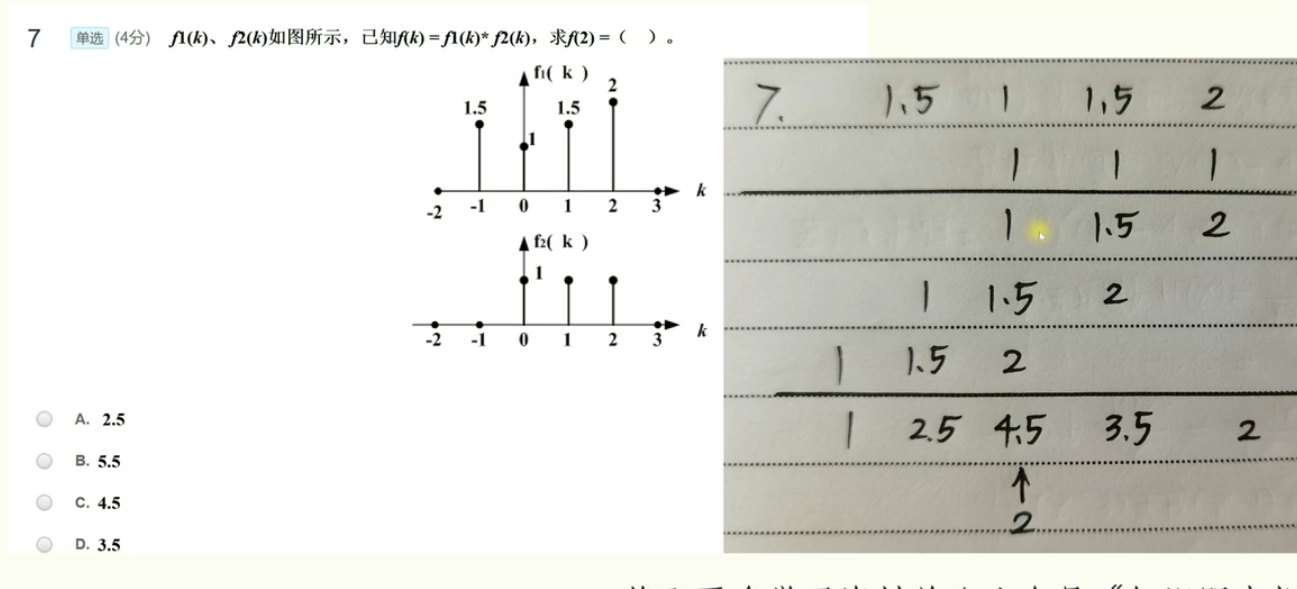 7 单选 (4分) f1(k)、f2(k)如图所示，已知f(k) = f1(k)* f2(k)，求f(2) =（ ）。
f1( k )
2
1.5 1.5
1
k
-2 -1 0 1 2 3
f2( k )
1
k
-2 -1 0 1 2 3
A. 2.5
B. 5.5
C. 4.5
D. 3.5
7. 1.5 1 1.5 2
1 1 1
1 1.5 2
1 1.5 2
1 1.5 2
1 2.5 4.5 3.5 2
↑
2